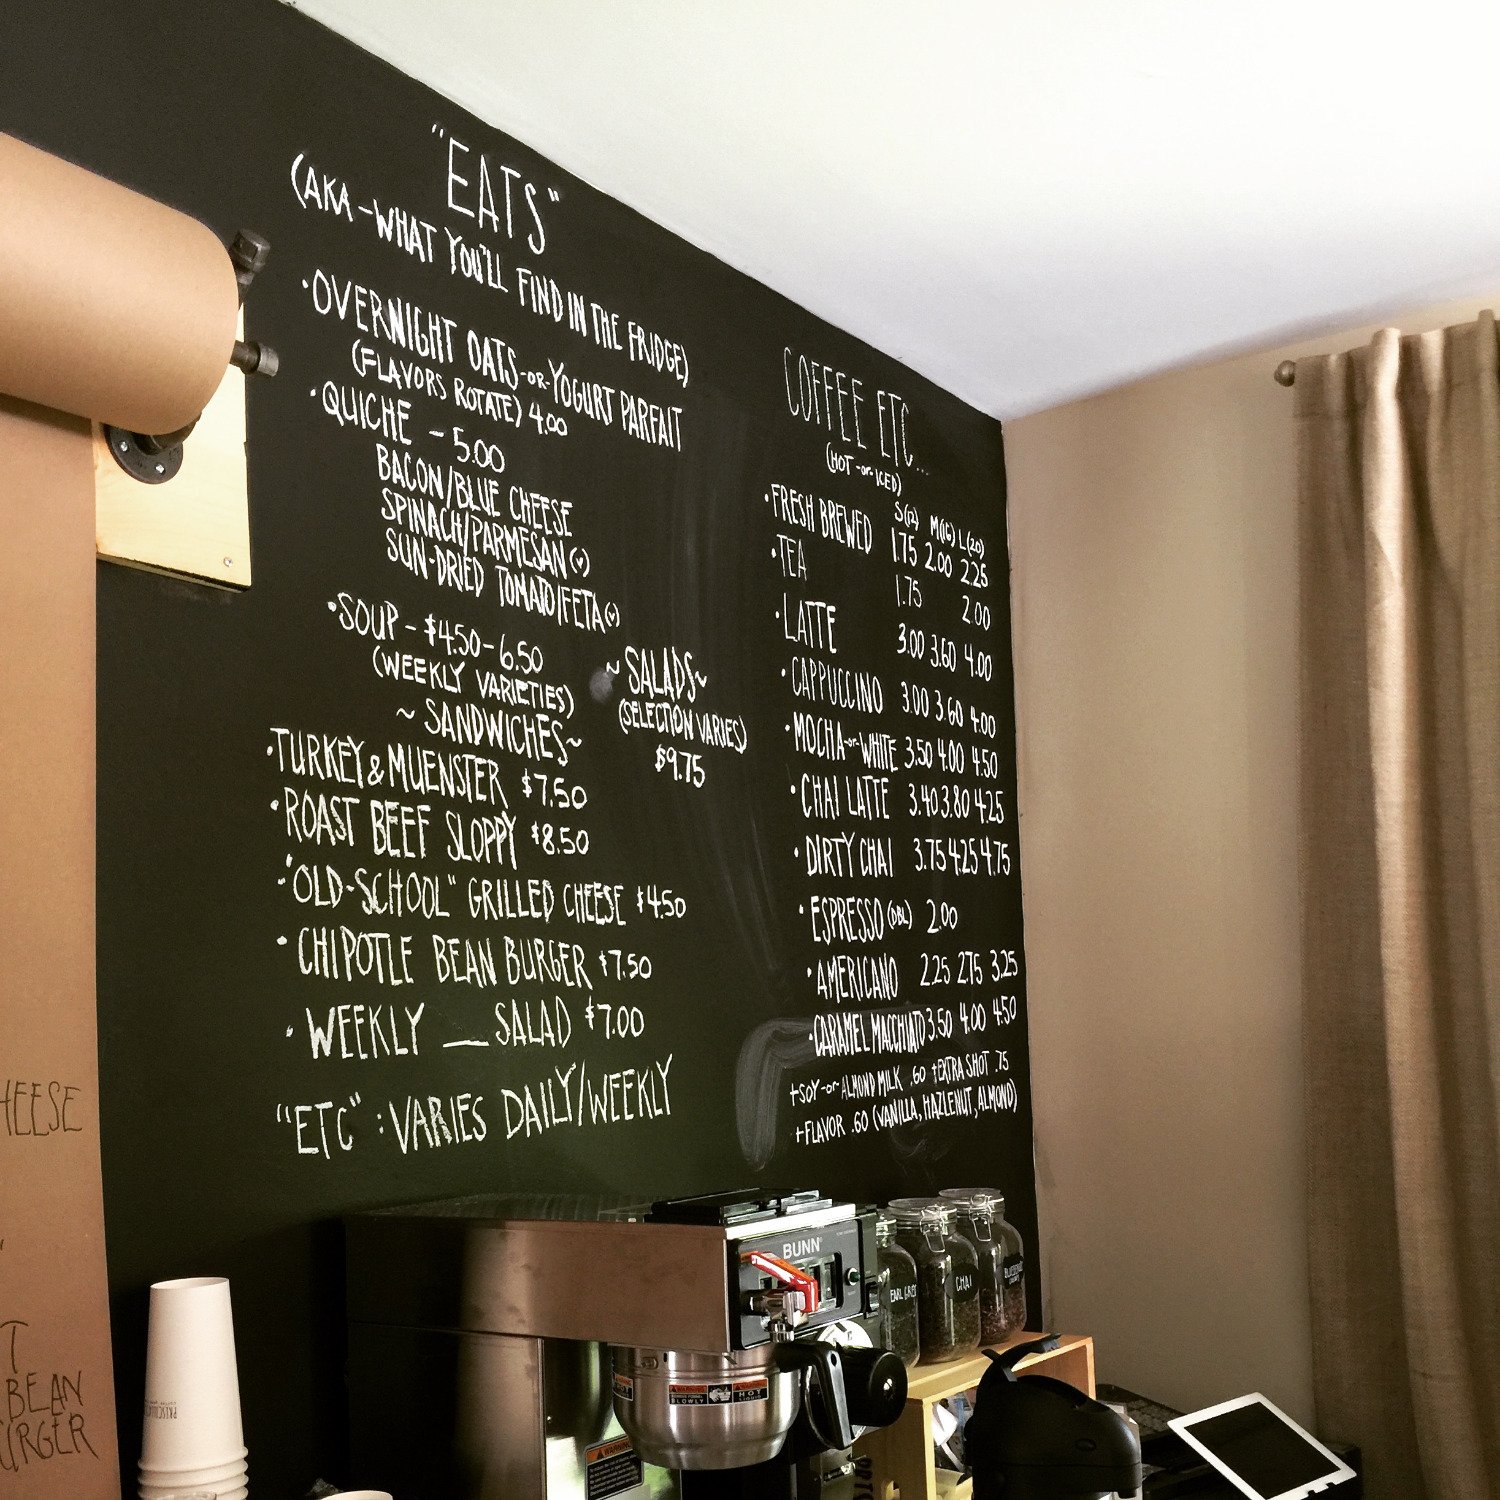 "EATS"
(AKA - WHAT YOU'LL FIND IN THE FRIDGE)
· OVERNIGHT OATS -OR- YOGURT PARFAIT
(FLAVORS ROTATE) 4.00
· QUICHE - 5.00
BACON/BLUE CHEESE
SPINACH/PARMESAN (V)
SUN-DRIED TOMATO/FETA (V)
· SOUP - $4.50 - 6.50
(WEEKLY VARIETIES)
~ SALADS ~
(SELECTION VARIES)
$9.75
~ SANDWICHES ~
· TURKEY & MUENSTER $7.50
· ROAST BEEF SLOPPY $8.50
· "OLD-SCHOOL" GRILLED CHEESE $4.50
· CHIPOTLE BEAN BURGER $7.50
· WEEKLY __ SALAD $7.00
"ETC" : VARIES DAILY/WEEKLY
COFFEE ETC...
(HOT -OR- ICED)
S(12) M(16) L(20)
· FRESH BREWED 1.75 2.00 2.25
· TEA 1.75 2.00
· LATTE 3.00 3.60 4.00
· CAPPUCCINO 3.00 3.60 4.00
· MOCHA -OR- WHITE 3.50 4.00 4.50
· CHAI LATTE 3.40 3.80 4.25
· DIRTY CHAI 3.75 4.25 4.75
· ESPRESSO (DBL) 2.00
· AMERICANO 2.25 2.75 3.25
· CARAMEL MACCHIATO 3.50 4.00 4.50
+ SOY -OR- ALMOND MILK .60 + EXTRA SHOT .75
+ FLAVOR .60 (VANILLA, HAZLENUT, ALMOND)
HEESE
T
BEAN
URGER
BUNN
EARL GREY
CHAI
WARNING
HOT